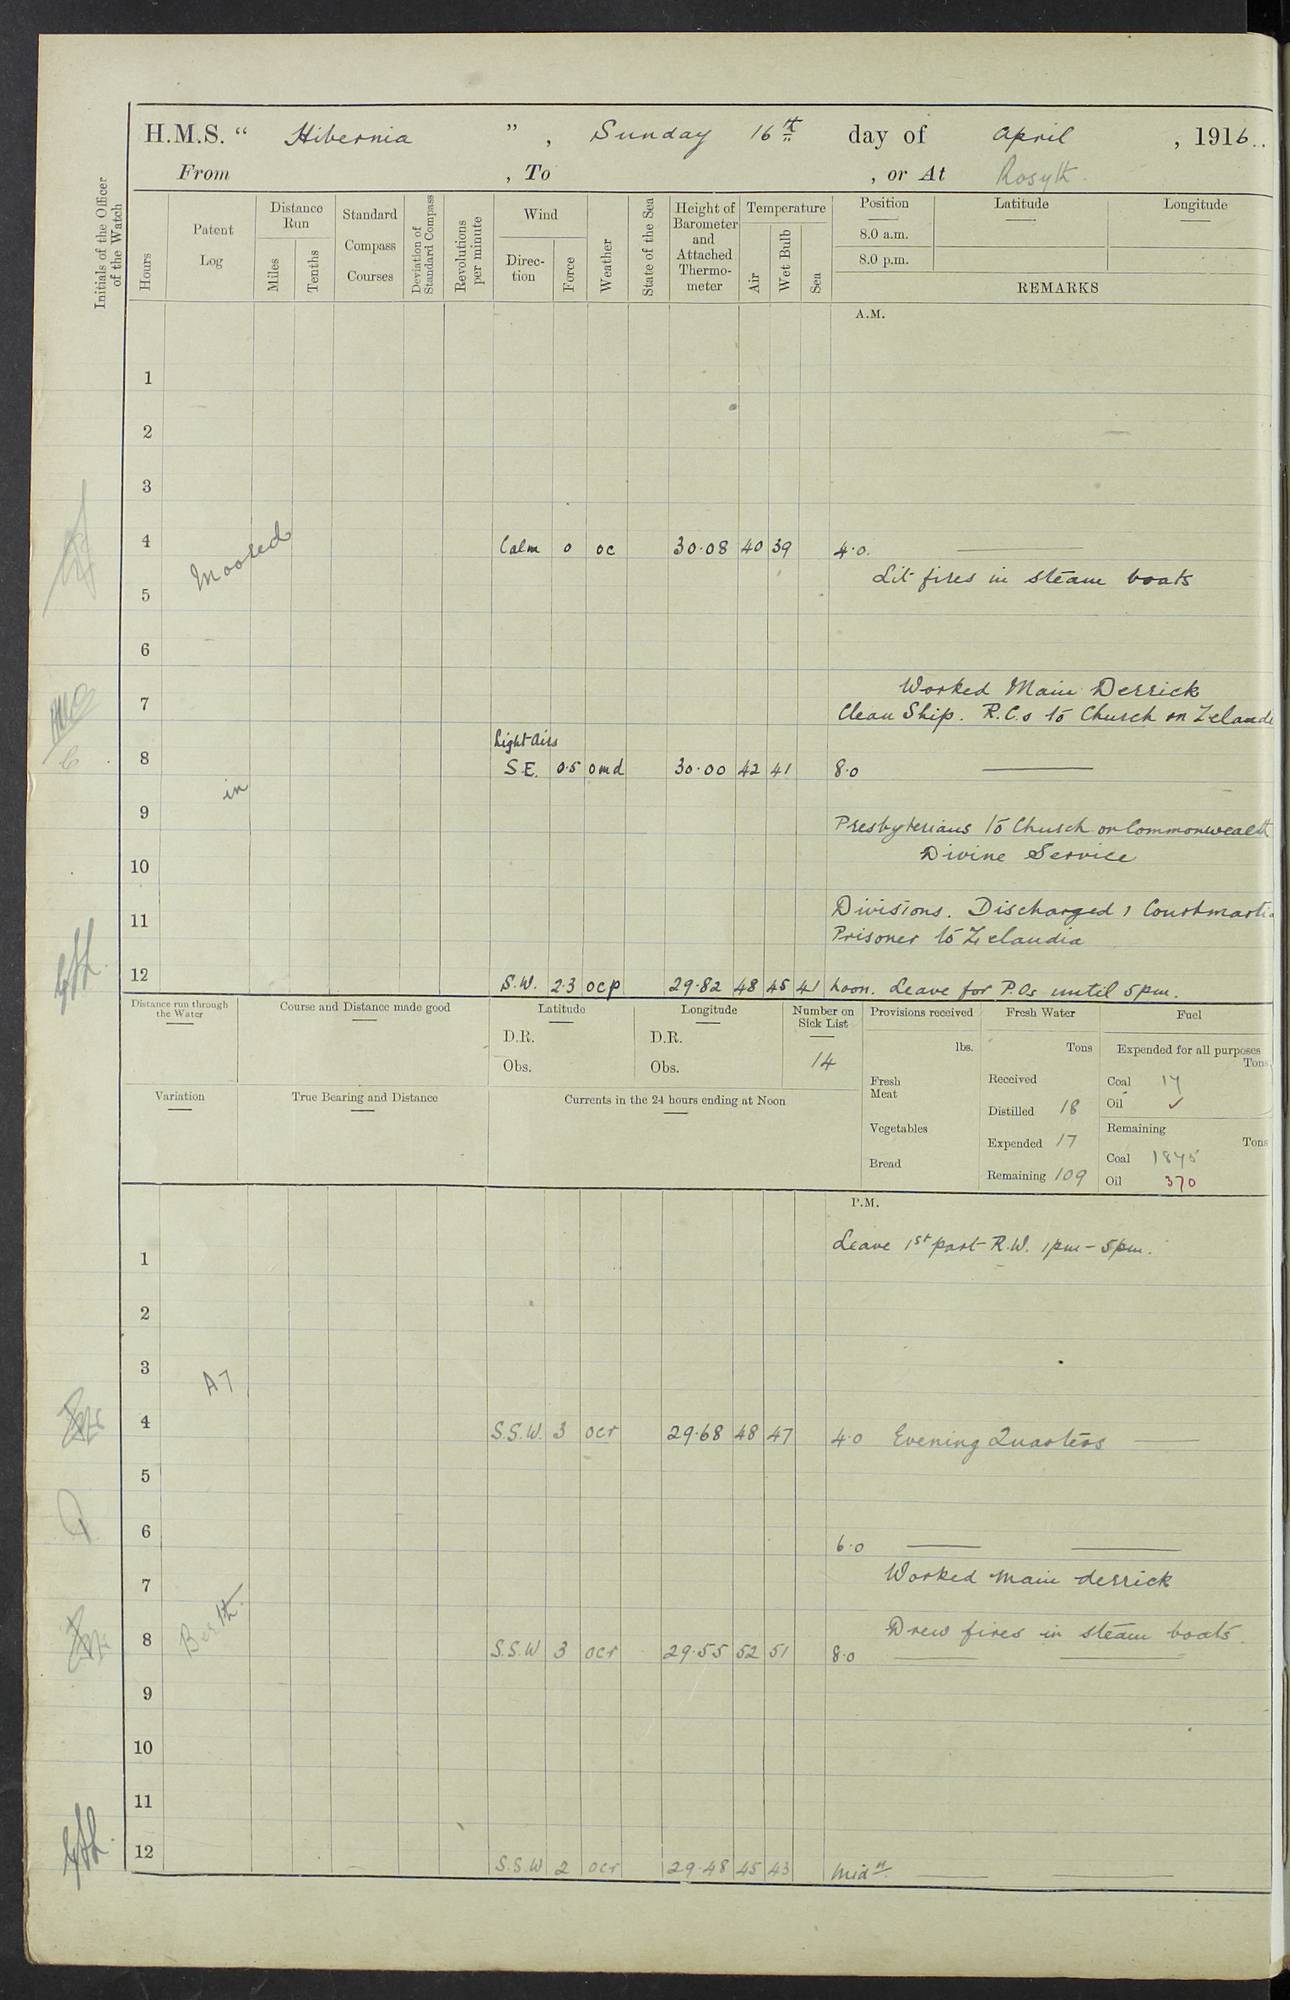 H.M.S. " Hibernia ", Sunday 16th day of April, 1916..
From , To , or At Rosyth.
Initials of the Officer of the Watch
Hours
Patent Log
Distance Run
Miles
Tenths
Standard Compass Courses
Deviation of Standard Compass
Revolutions per minute
Wind
Direc-tion
Force
Weather
State of the Sea
Height of Barometer and Attached Thermo-meter
Temperature
Air
Wet Bulb
Sea
Position
Latitude
Longitude
8.0 a.m.
8.0 p.m.
REMARKS
A.M.
1
2
3
4 Calm 0 oc 30.08 40 39 4.0.
Moored
Lit fires in steam boats
5
6
Worked Main Derrick
7 Clean Ship. R.C.s to Church on Zelandi
Light Airs
8 S.E. 0.5 omd 30.00 42 41 8.0
in
9 Presbyterians to Church on Commonwealth
Divine Service
10
11 Divisions. Discharged 1 Courtmarti
Prisoner to Zelandia
12 S.W. 2.3 ocp 29.82 48 45 41 Noon. Leave for P.Os until 5pm.
Distance run through the Water
Course and Distance made good
Latitude
D.R.
Obs.
Longitude
D.R.
Obs.
Number on Sick List
14
Provisions received
lbs.
Fresh Meat
Vegetables
Bread
Fresh Water
Tons
Received
Distilled 18
Expended 17
Remaining 109
Fuel
Expended for all purposes
Tons
Coal 17
Oil ✓
Remaining
Tons
Coal 1875
Oil 370
Variation
True Bearing and Distance
Currents in the 24 hours ending at Noon
P.M.
Leave 1st part R.W. 1pm - 5pm.
1
2
3
A7
4 S.S.W. 3 ocr 29.68 48 47 4.0 Evening Quarters
5
6 6.0
Worked main derrick
7
Berth.
Drew fires in steam boats.
8 S.S.W 3 ocr 29.55 52 51 8.0
9
10
11
12 S.S.W 2 ocr 29.48 45 43 Midt.